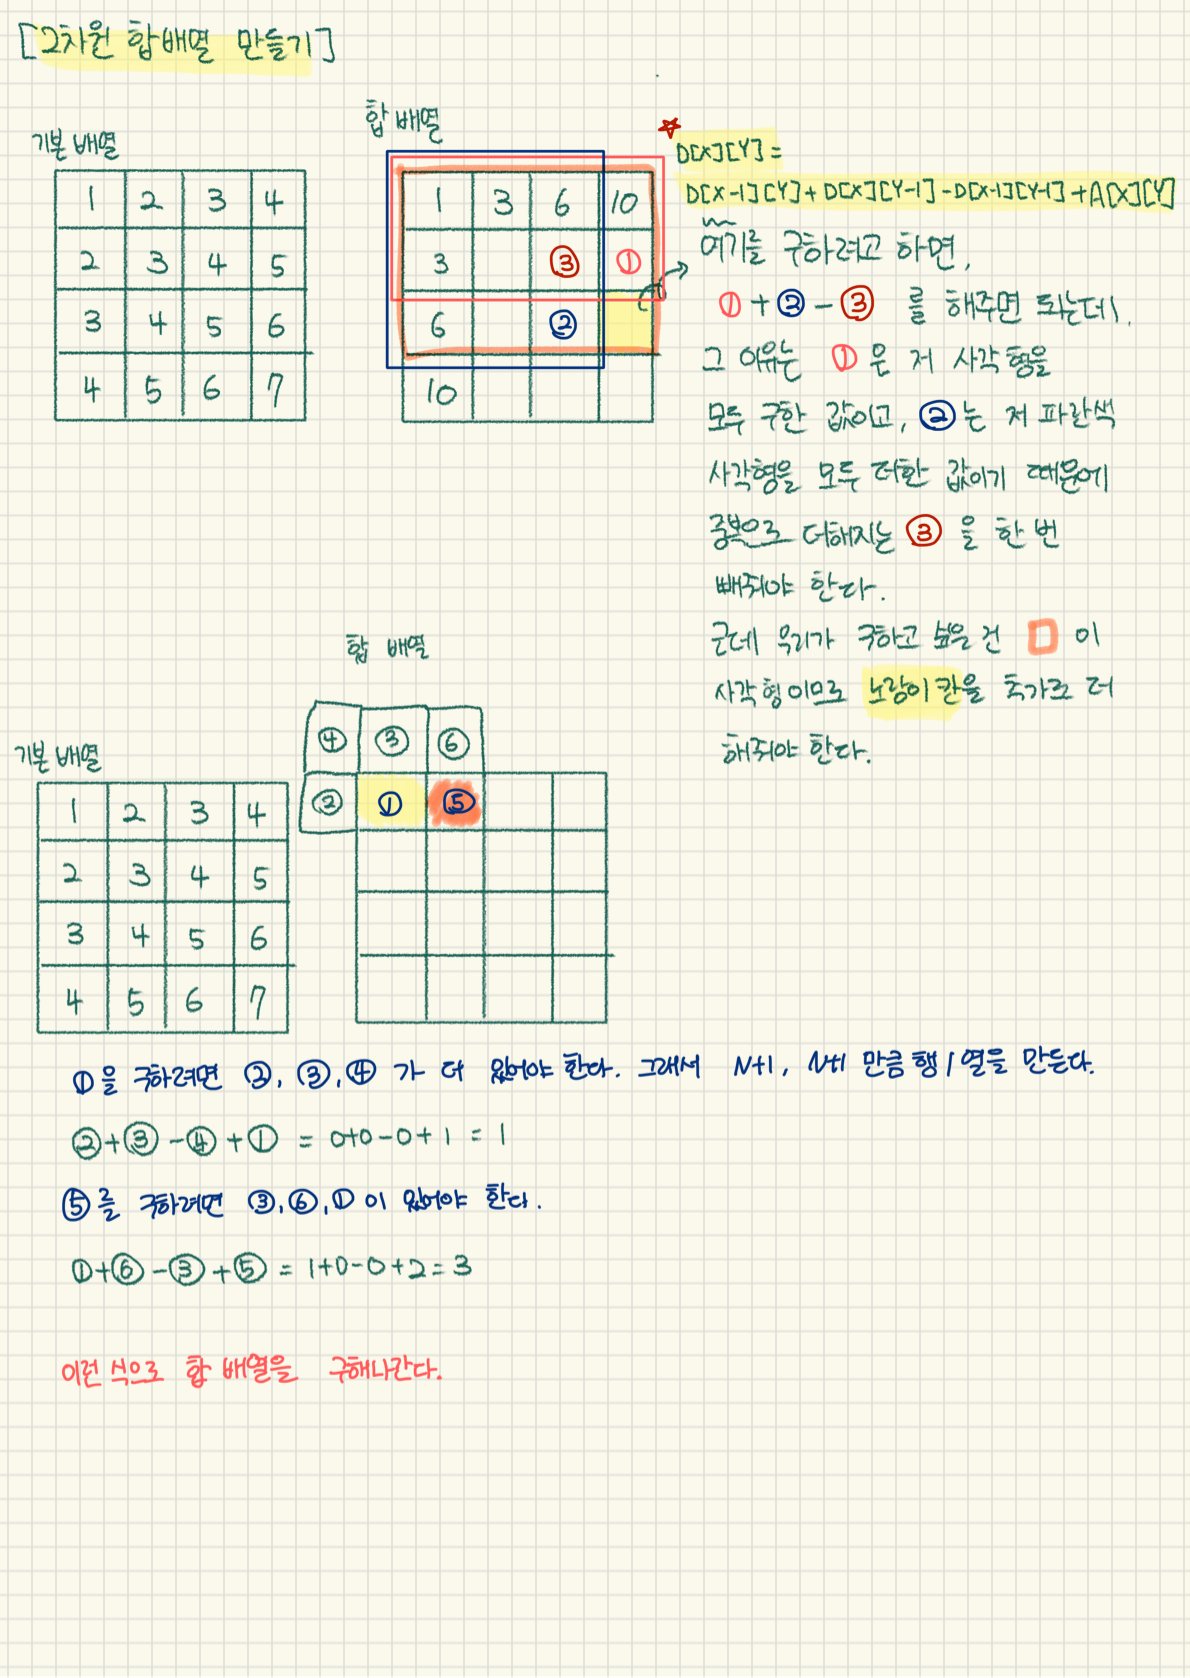 [2차원 합배열 만들기]
기본 배열
1 2 3 4
2 3 4 5
3 4 5 6
4 5 6 7
합 배열
1 3 6 10
3 ③ ①
6 ②
10
D[X][Y] =
D[X-1][Y] + D[X][Y-1] - D[X-1][Y-1] + A[X][Y]
여기를 구하려고 하면,
① + ② - ③ 를 해주면 되는데,
그 이유는 ①은 저 사각형을
모두 구한 값이고, ②는 저 파란색
사각형을 모두 더한 값이기 때문에
중복으로 더해지는 ③을 한 번
빼줘야 한다.
근데 우리가 구하고 싶은 건 □ 이
사각형이므로 노랑이 칸을 추가로 더
해줘야 한다.
합 배열
기본 배열
1 2 3 4
2 3 4 5
3 4 5 6
4 5 6 7
④ ③ ⑥
② ① ⑤
①을 구하려면 ②, ③, ④ 가 더 있어야 한다. 그래서 N+1, N+1 만큼 행/열을 만든다.
②+③-④+① = 0+0-0+1 = 1
⑤를 구하려면 ③, ⑥, ①이 있어야 한다.
①+⑥-③+⑤ = 1+0-0+2 = 3
이런 식으로 합 배열을 구해나간다.